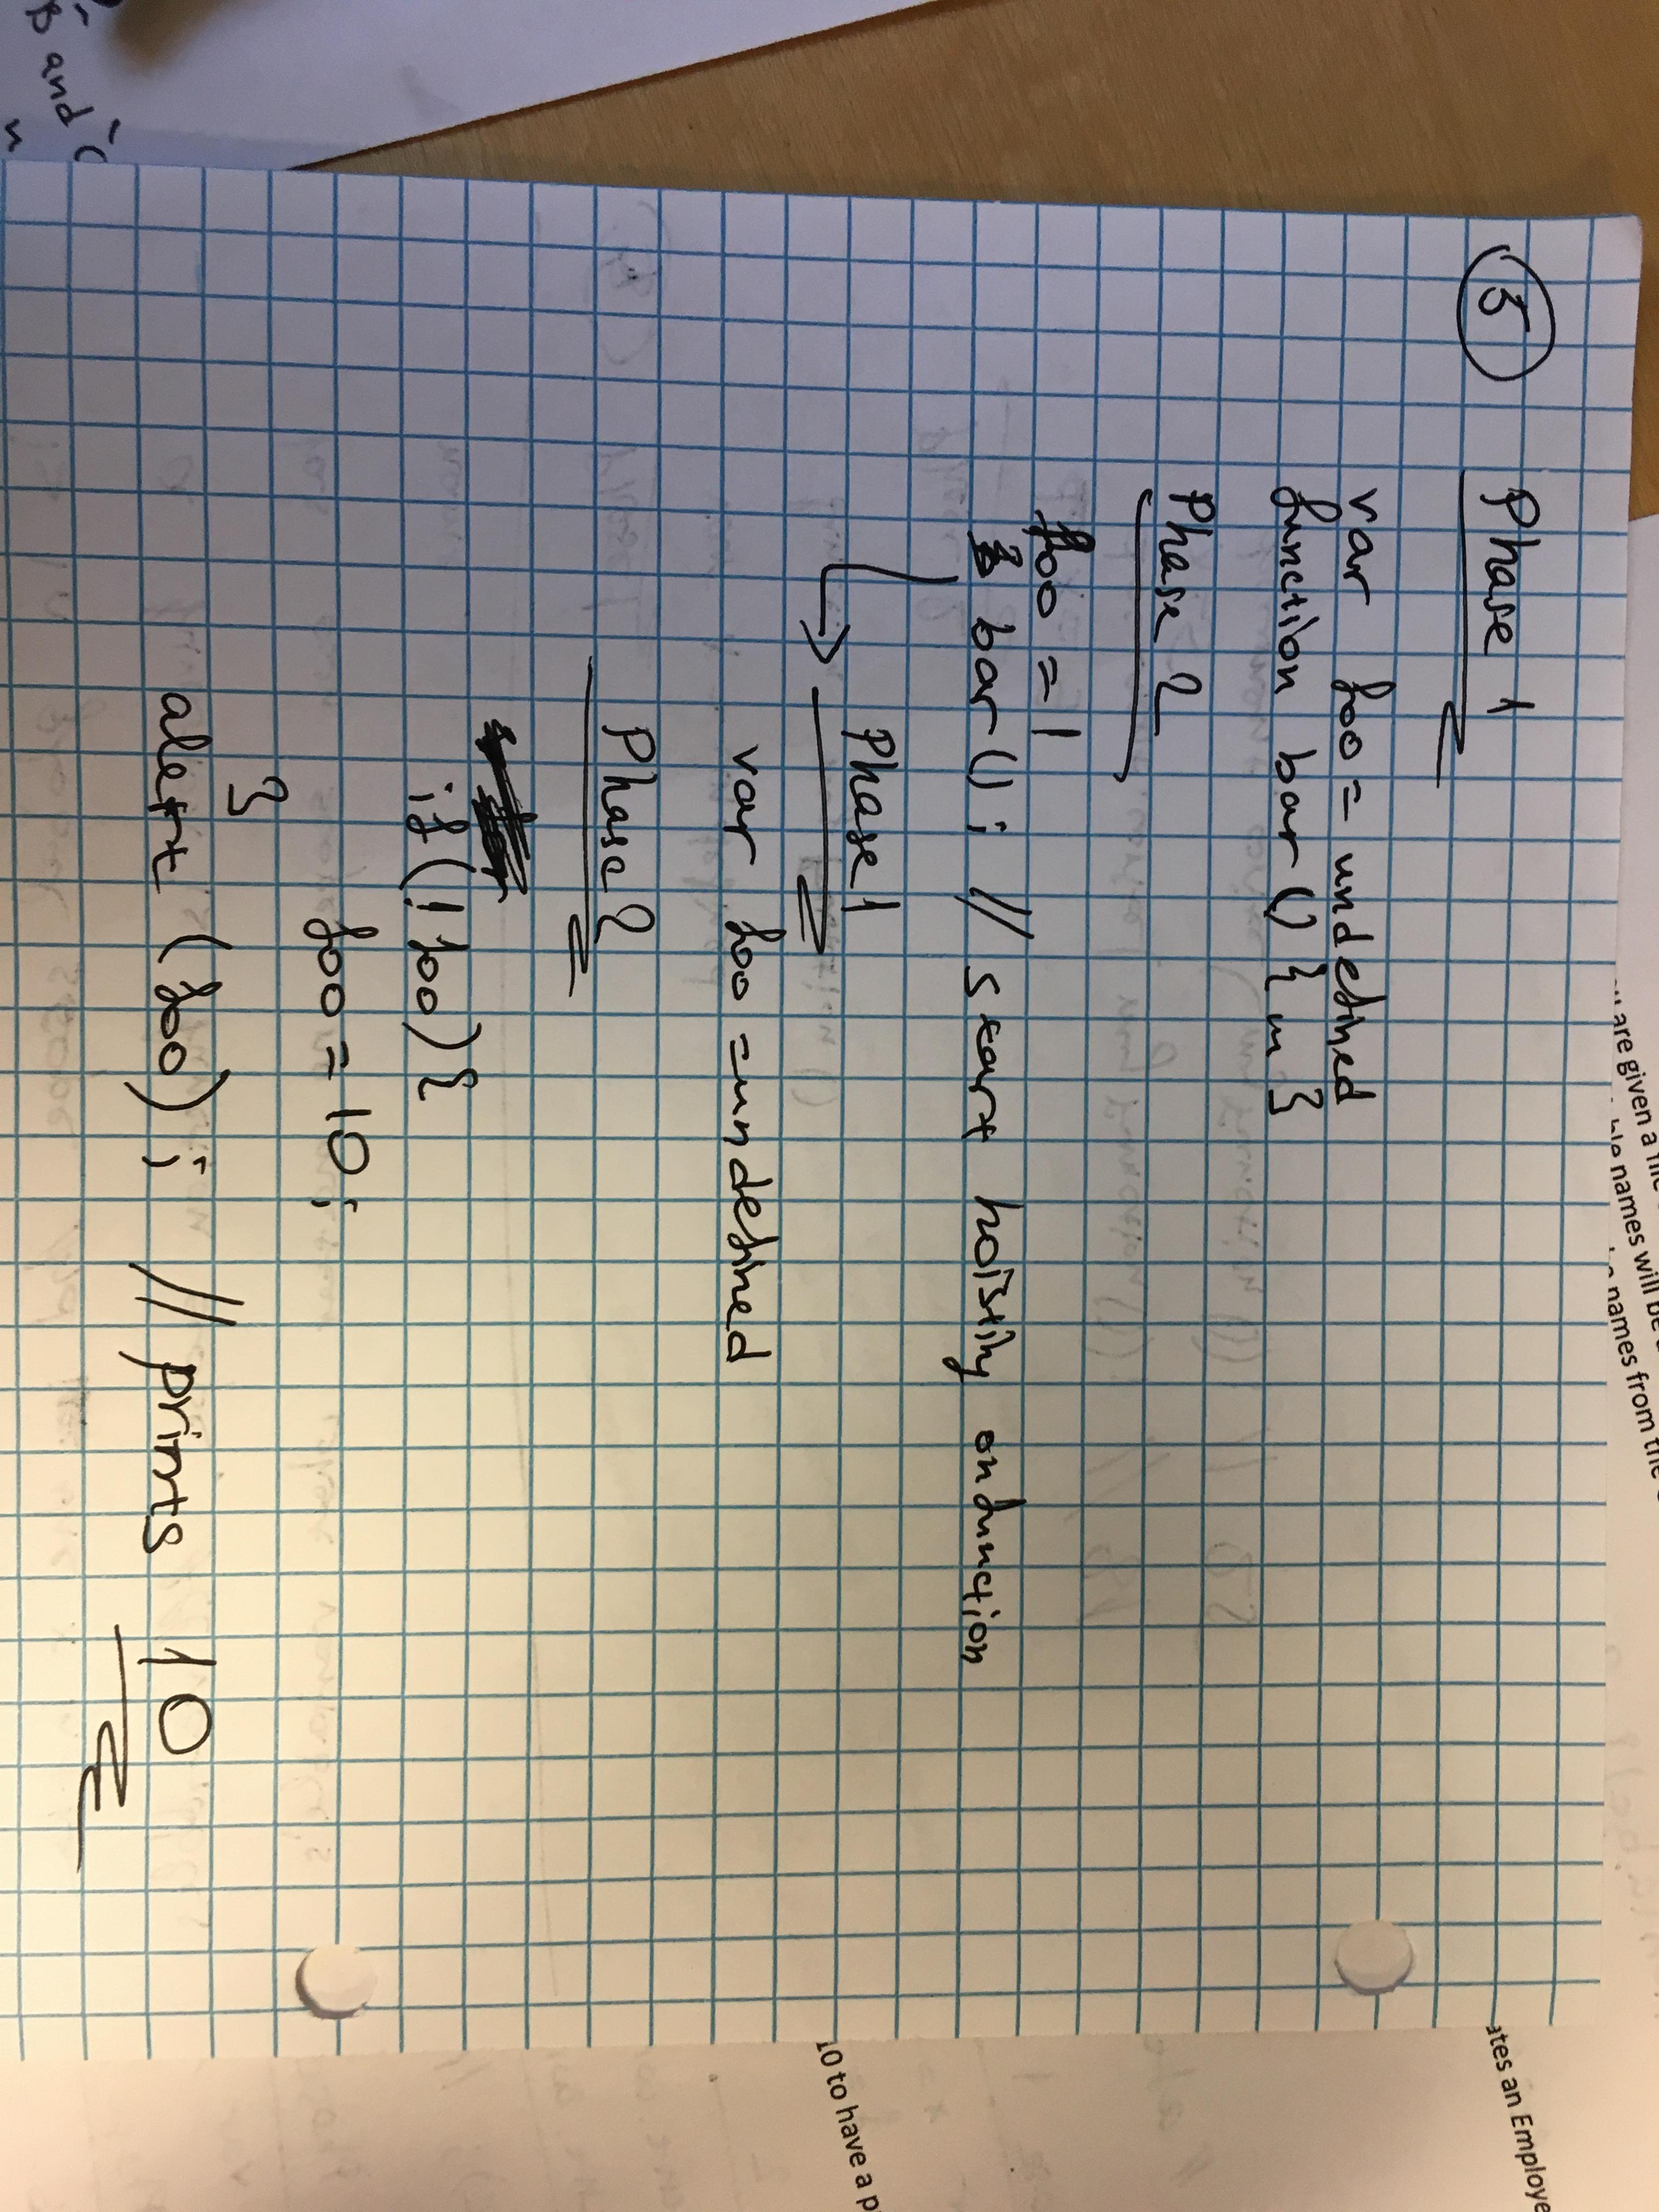 are given a
names will be
names from the
ates an Employe
5 Phase 1
var foo = undefined
function bar () { ... }
Phase 2
foo = 1
bar () ; // start hoisting on function
10 to have a p
Phase 1
var foo = undefined
Phase 2
if (! foo) {
foo = 10 ;
}
alert (foo) ; // prints 10
B and C